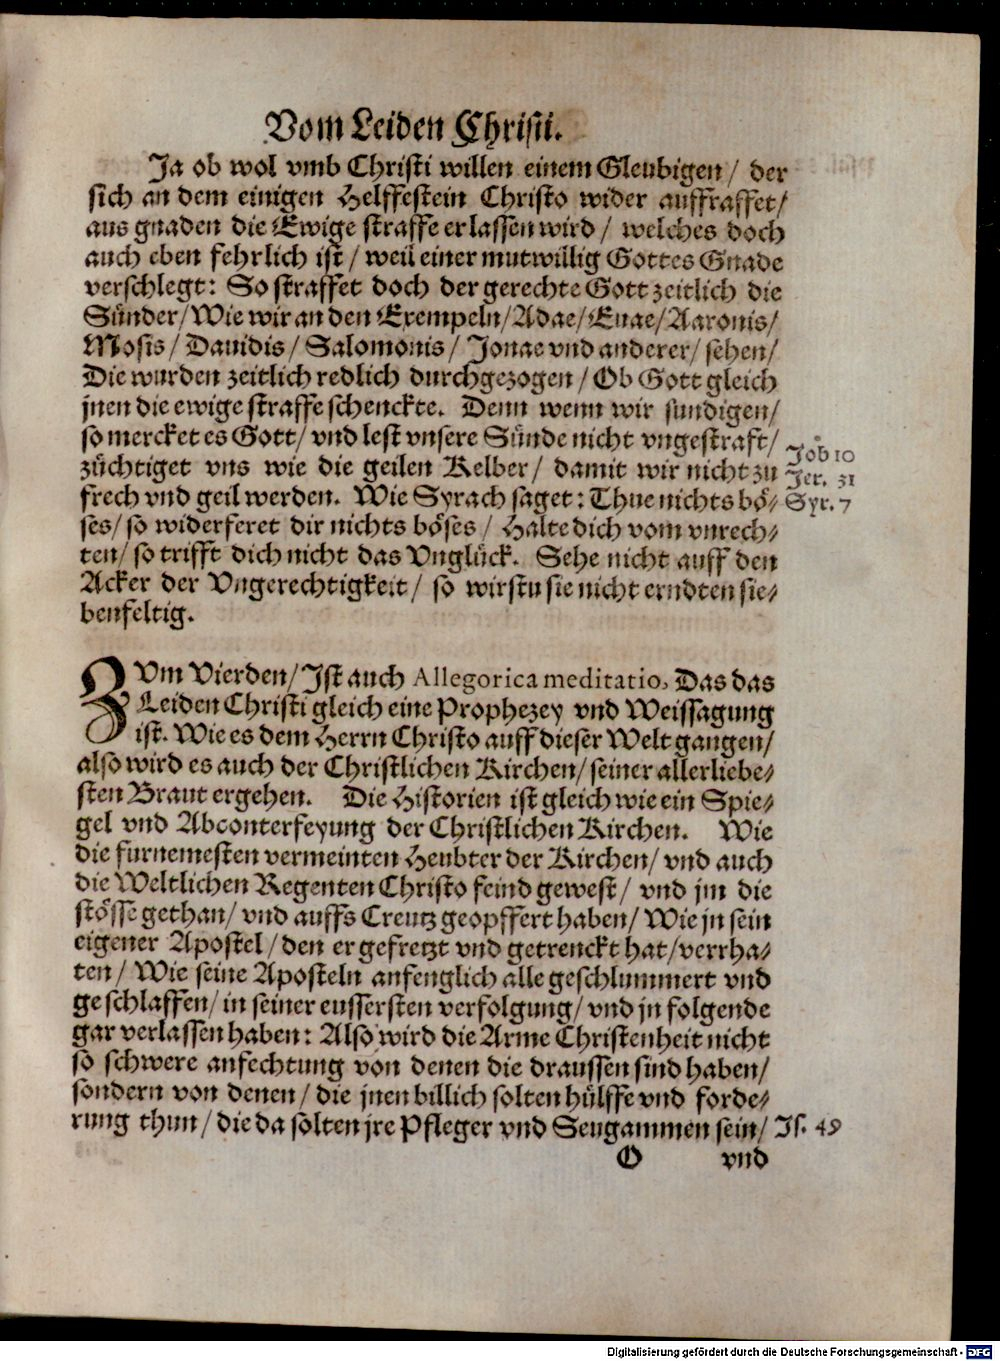 Vom Leiden Christi.
Ja ob wol vmb Christi willen einem Gleubigen / der
sich an dem einigen Helffestein Christo wider auffraffet /
aus gnaden die Ewige straffe erlassen wird / welches doch
auch eben fehrlich ist / weil einer mutwillig Gottes Gnade
verschlegt: So straffet doch der gerechte Gott zeitlich die
Sünder / Wie wir an den Exempeln / Adae / Euae / Aaronis /
Mosis / Dauidis / Salomonis / Jonae vnd anderer / sehen /
Die wurden zeitlich redlich durchgezogen / Ob Gott gleich
jnen die ewige straffe schenckte. Denn wenn wir sundigen /
so mercket es Gott / vnd lest vnsere Sünde nicht vngestraft /
züchtiget vns wie die geilen Kelber / damit wir nicht zu
frech vnd geil werden. Wie Syrach saget: Thue nichts bö-
ses / so widerferet dir nichts böses / Halte dich vom vnrech-
ten / so trifft dich nicht das Vnglück. Sehe nicht auff den
Acker der Vngerechtigkeit / so wirstu sie nicht erndten sie-
benfeltig.
Job 10
Jer. 31
Syr. 7
ZVm Vierden / Ist auch Allegorica meditatio, Das das
Leiden Christi gleich eine Prophezey vnd Weissagung
ist. Wie es dem Herrn Christo auff dieser Welt gangen /
also wird es auch der Christlichen Kirchen / seiner allerliebe-
sten Braut ergehen. Die Historien ist gleich wie ein Spie-
gel vnd Abconterfeyung der Christlichen Kirchen. Wie
die furnemesten vermeinten Heubter der Kirchen / vnd auch
die Weltlichen Regenten Christo feind gewest / vnd jm die
stösse gethan / vnd auffs Creutz geopffert haben / Wie jn sein
eigener Apostel / den er gefretzt vnd getrenckt hat / verrha-
ten / Wie seine Aposteln anfenglich alle geschlummert vnd
geschlaffen / in seiner eussersten verfolgung / vnd jn folgende
gar verlassen haben: Also wird die Arme Christenheit nicht
so schwere anfechtung von denen die draussen sind haben /
sondern von denen / die jnen billich solten hülffe vnd forde-
rung thun / die da solten jre Pfleger vnd Seugammen sein /
Is. 49
O vnd
Digitalisierung gefördert durch die Deutsche Forschungsgemeinschaft - DFG